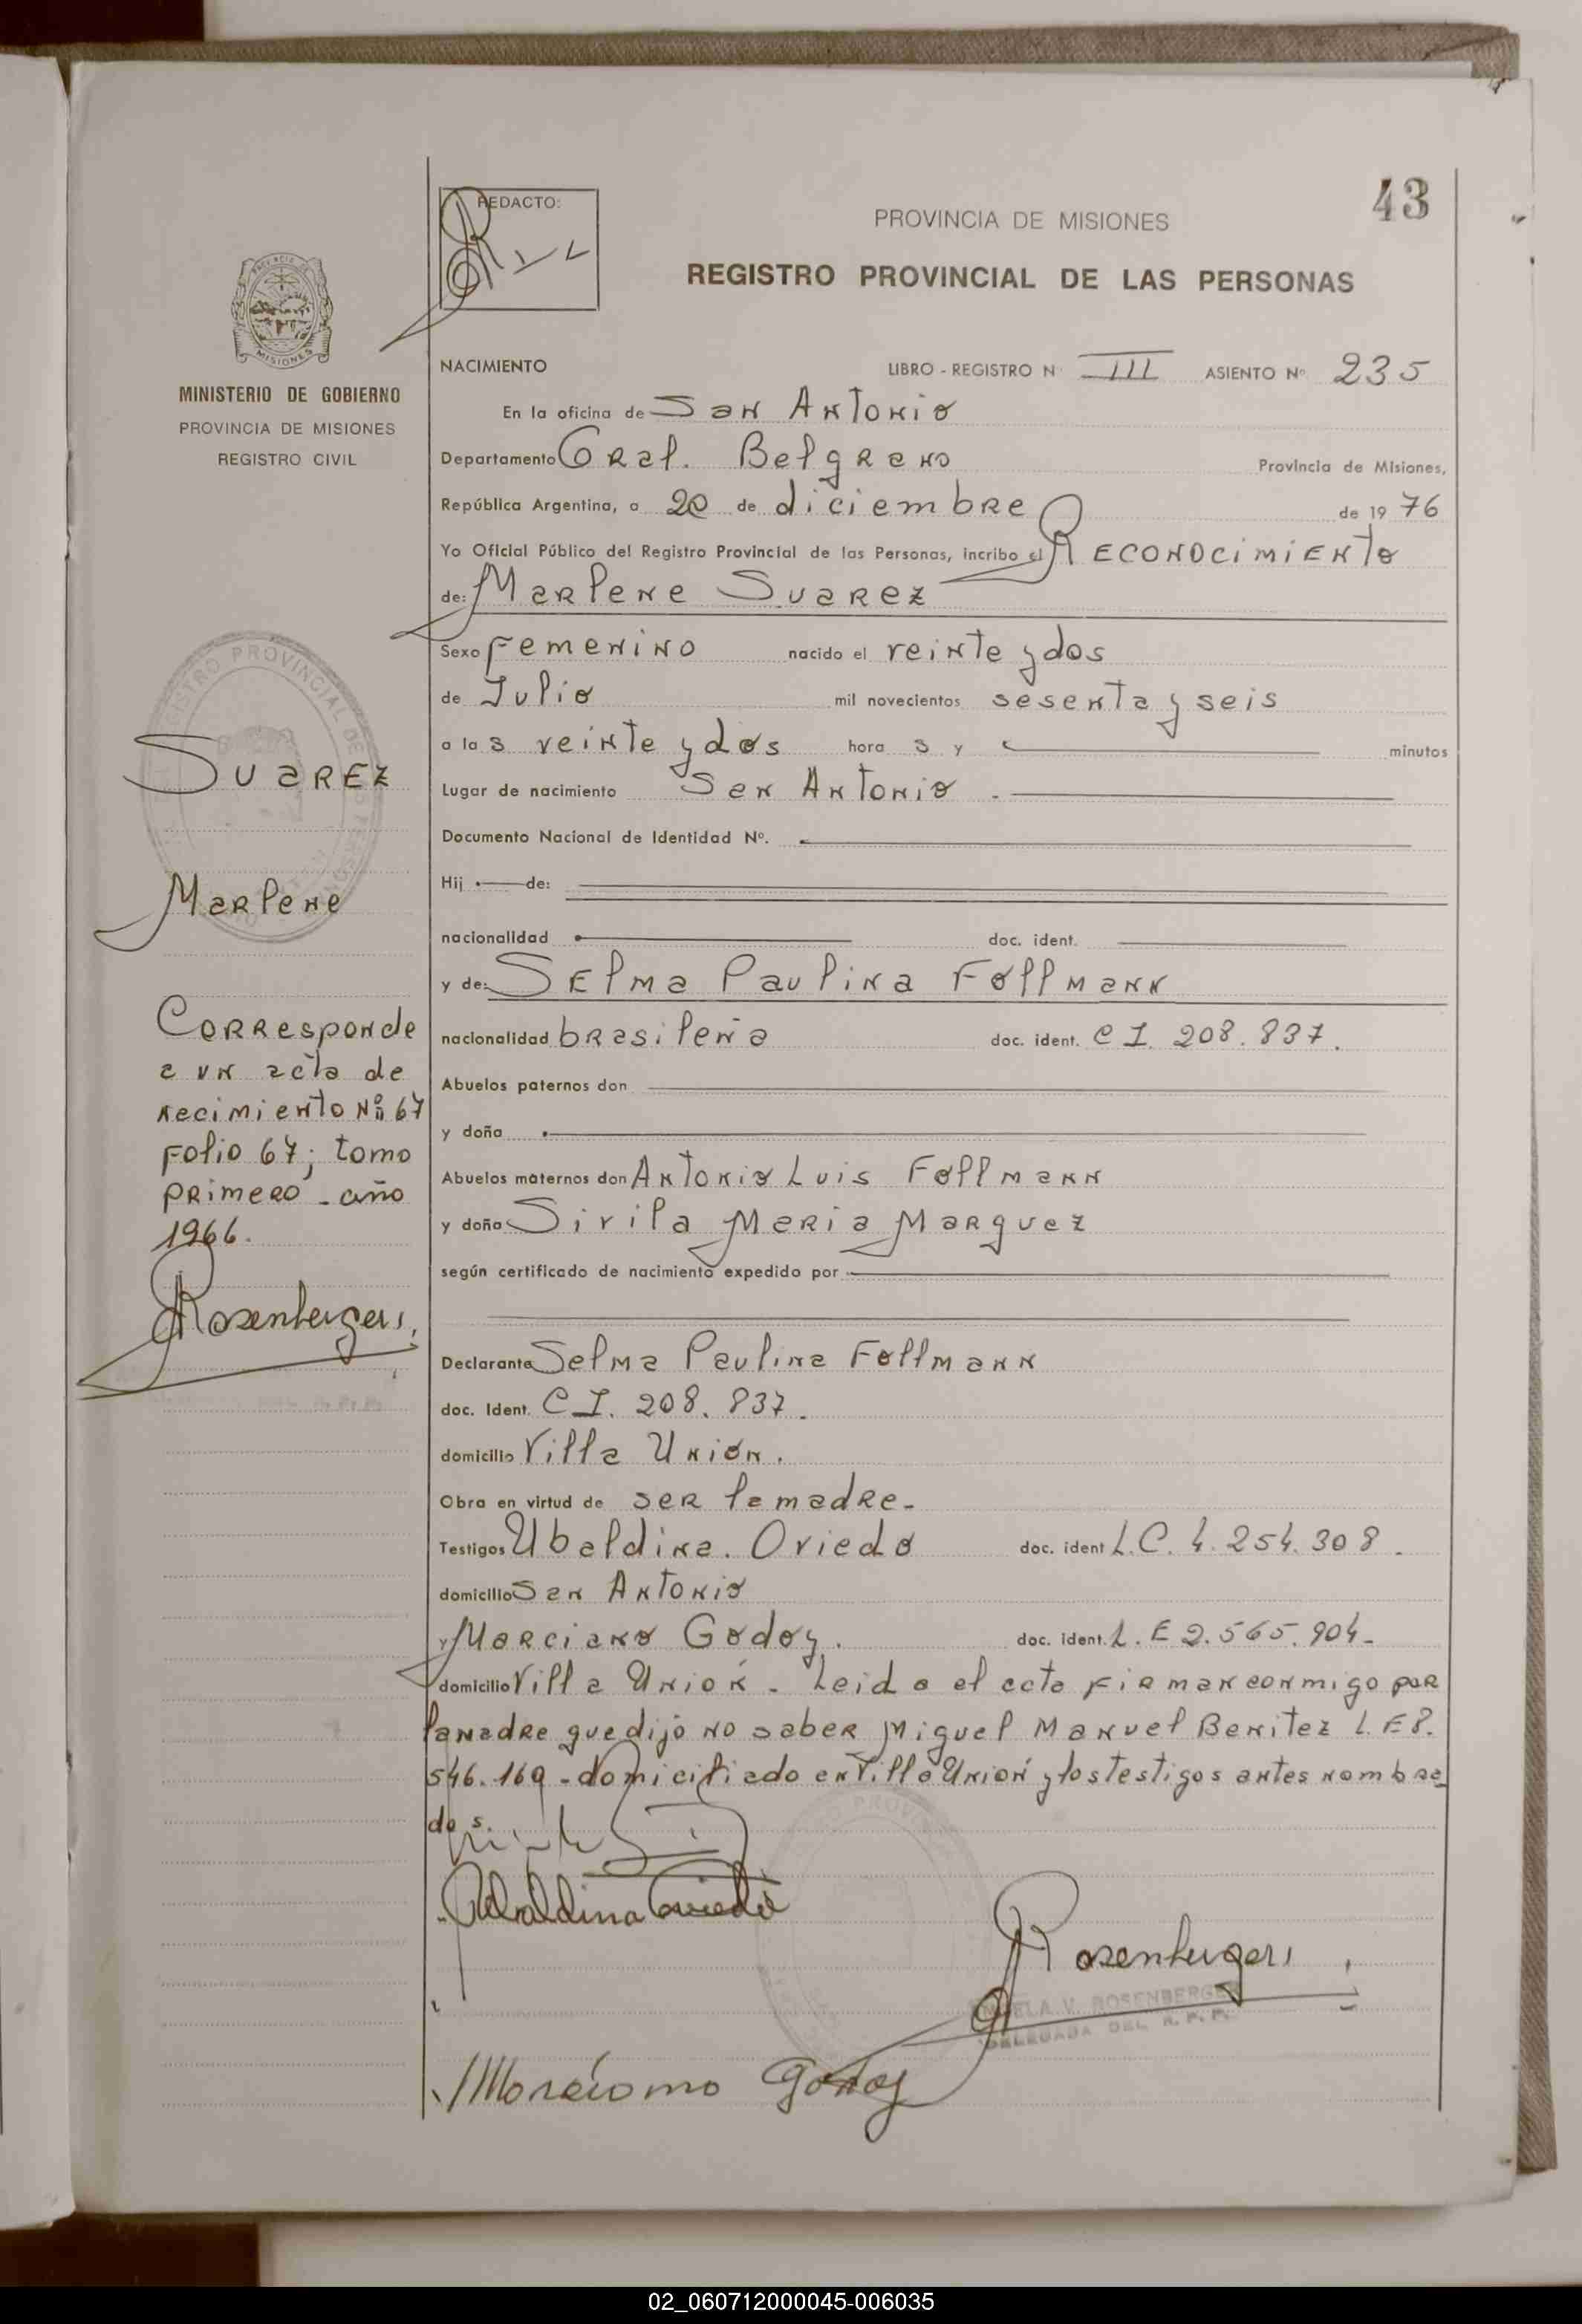 43
REDACTO:
PROVINCIA DE MISIONES
REGISTRO PROVINCIAL DE LAS PERSONAS
MISIONES
MINISTERIO DE GOBIERNO
PROVINCIA DE MISIONES
REGISTRO CIVIL
NACIMIENTO LIBRO - REGISTRO N III ASIENTO Nº 235
En la oficina de San Antonio
Departamento Gral. Belgrano Provincia de Misiones,
República Argentina, a 20 de diciembre de 19 76
Yo Oficial Público del Registro Provincial de las Personas, incribo el Reconocimiento
de: Marlene Suarez
Sexo Femenino nacido el veinte y dos
de Julio mil novecientos sesenta y seis
a las veinte y dos horas y minutos
Lugar de nacimiento San Antonio.
Documento Nacional de Identidad Nº.
Hij de:
nacionalidad doc. ident.
y de: Selma Paulina Follmann
nacionalidad brasileña doc. ident. C I. 208.837.
Abuelos paternos don
y doña
Abuelos maternos don Antonio Luis Follmann
y doña Sirila Maria Marquez
según certificado de nacimiento expedido por
Declarante Selma Paulina Follmann
doc. Ident. C I. 208.837.
domicilio Villa Unión.
Obra en virtud de ser la madre.
Testigos Ubaldina. Oviedo doc. ident L.C. 4.254.308.
domicilio San Antonio
y Marciano Godoy. doc. ident. L.E 2.565.904-
domicilio Villa Unión - Leida el acta firman conmigo por
la madre que dijo no saber Miguel Manuel Benitez L.E 8.
546.169 - domiciliado en Villa Unión y los testigos antes nombra
dos.
Suarez
Marlene
Corresponde
a un acta de
nacimiento Nº 67
Folio 67; tomo
primero - año
1966.
Rosenberger
Ubaldina Oviedo
Rosenberger
ANGELA V. ROSENBERGER
DELEGADA DEL R. P. P.
Marciano Godoy
02_060712000045-006035